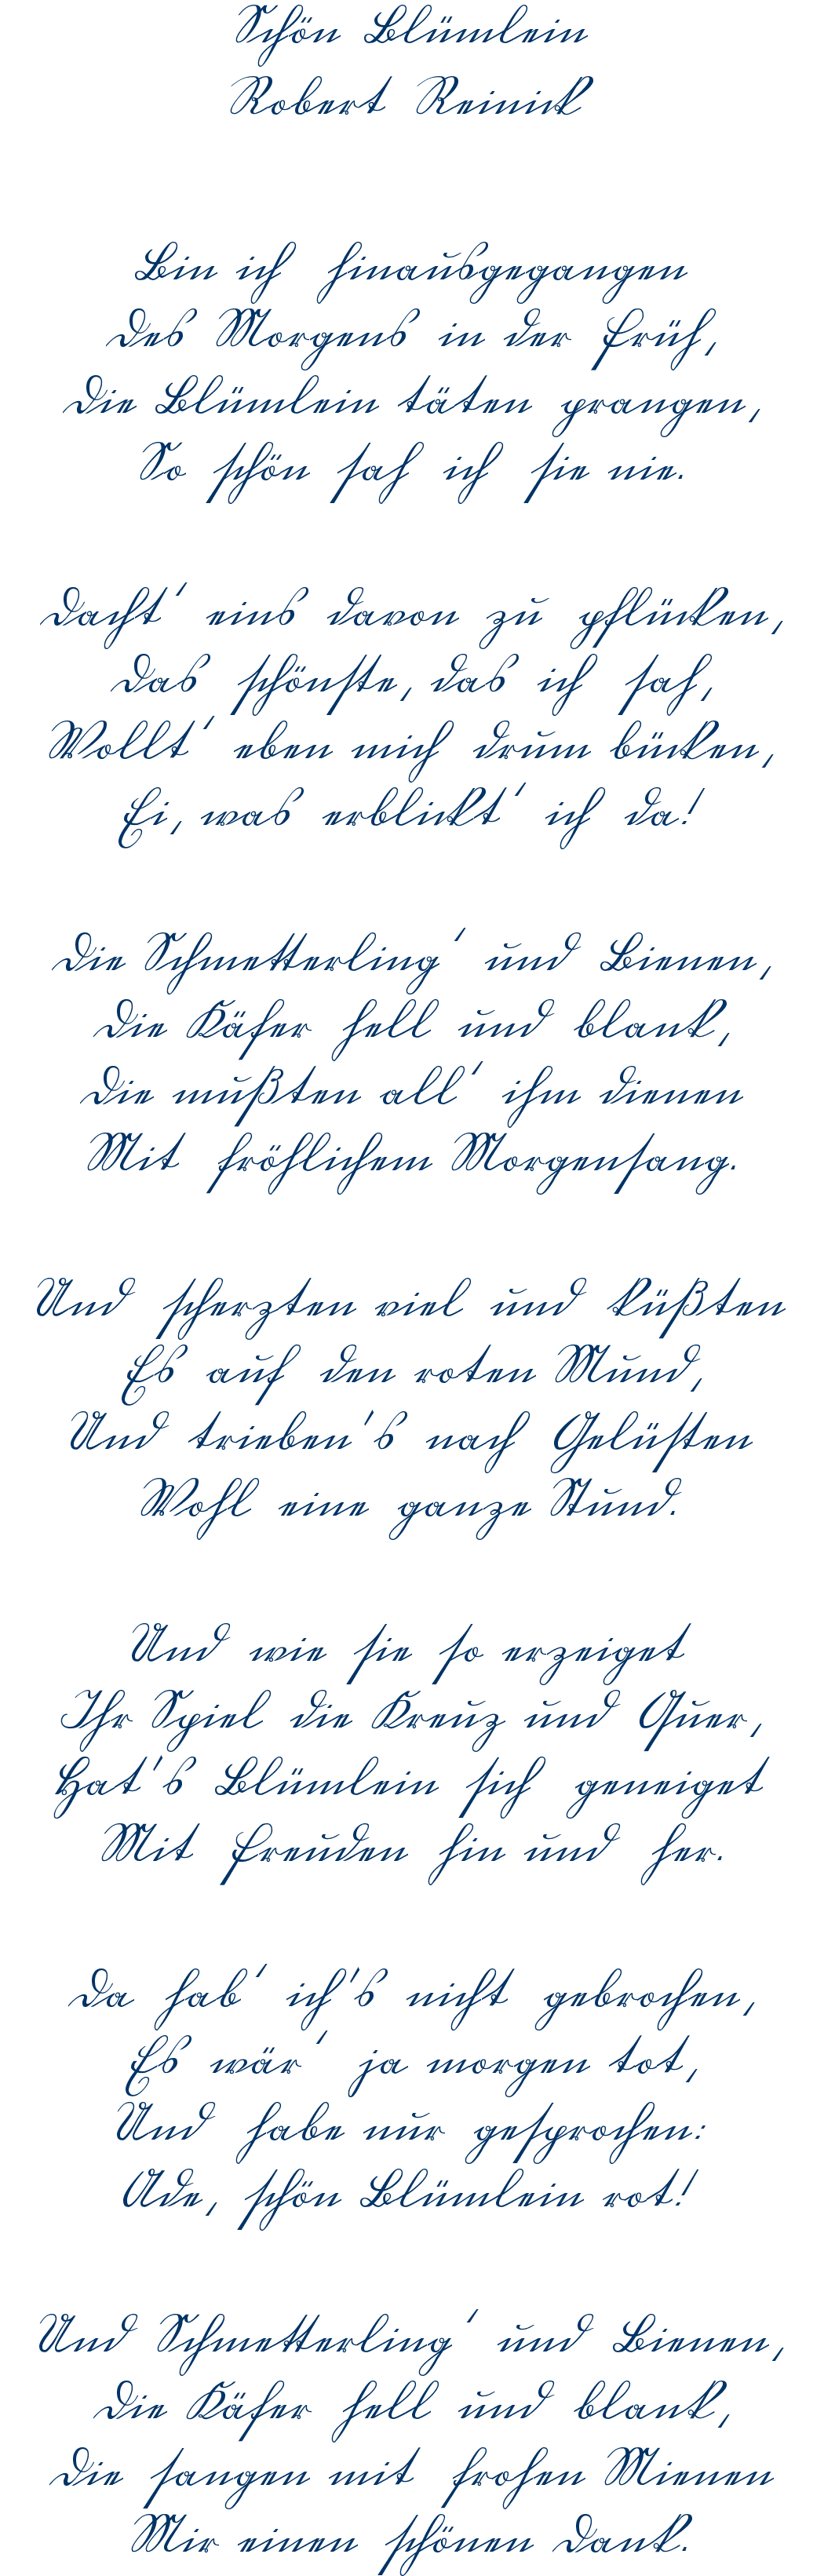 Schön Blümlein
Robert Reinick
Bin ich hinausgegangen
Des Morgens in der Früh,
Die Blümlein täten prangen,
So schön sah ich sie nie.
Dacht' eins davon zu pflücken,
Das schönste, das ich sah,
Wollt' eben mich drum bücken,
Ei, was erblickt' ich da!
Die Schmetterling' und Bienen,
Die Käfer hell und blank,
Die mußten all' ihm dienen
Mit fröhlichem Morgensang.
Und scherzten viel und küßten
Es auf den roten Mund,
Und trieben's nach Gelüsten
Wohl eine ganze Stund.
Und wie sie so erzeiget
Ihr Spiel die Kreuz und Quer,
Hat's Blümlein sich geneiget
Mit Freuden hin und her.
Da hab' ich's nicht gebrochen,
Es wär' ja morgen tot,
Und habe nur gesprochen:
Ade, schön Blümlein rot!
Und Schmetterling' und Bienen,
Die Käfer hell und blank,
Die sangen mit frohen Mienen
Mir einen schönen Dank.